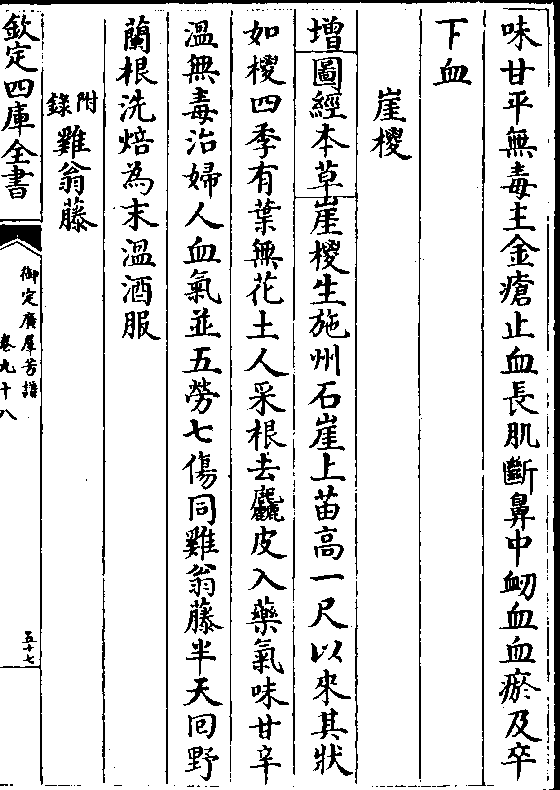 味甘平無毒主金瘡止血長肌斷鼻中衂血血瘀及卒
下血
崖椶
增圖經本草崖椶生施州石崖上苗高一尺以來其狀
如椶四季有葉無花土人采根去麤皮入藥氣味甘辛
溫無毒治婦人血氣並五勞七傷同雞翁藤半天囘野
蘭根洗焙為末溫酒服
附錄雞翁藤
欽定四庫全書
御定廣羣芳譜
卷九十八
五十七